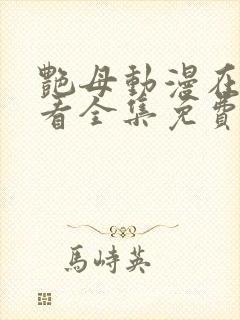 艷母動漫在
看全集免費
馬峙英